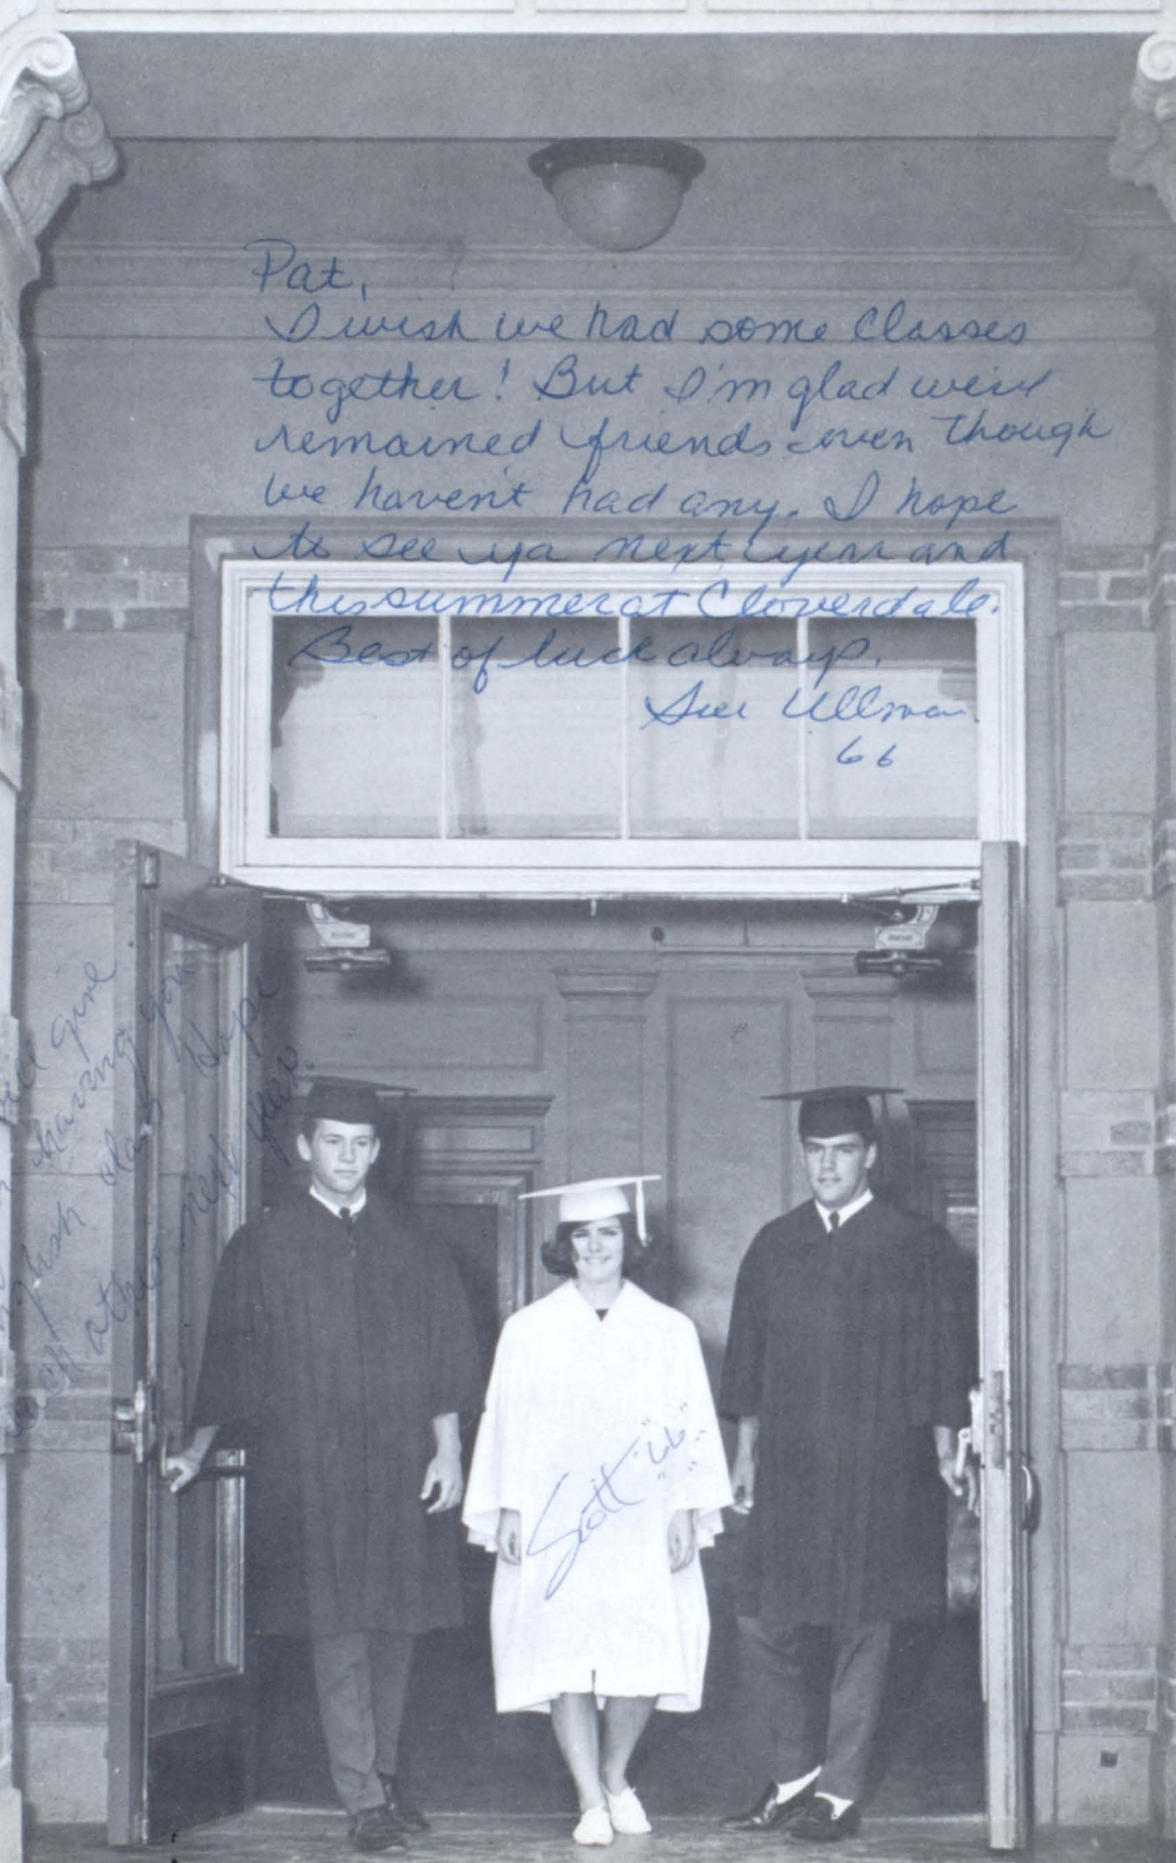 Pat,
I wish we had some classes
together! But I'm glad we've
remained friends even though
we haven't had any. I hope
to see ya next year and
this summer at Cloverdale.
Best of luck always.
Sue Ullman
66
give
having you
English class Hope
each other next year.
Scott "66"